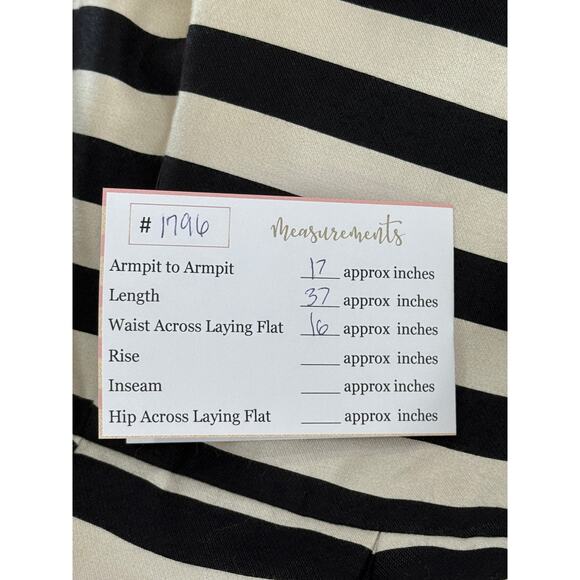 # 1796 Measurements
Armpit to Armpit 17 approx inches
Length 37 approx inches
Waist Across Laying Flat 16 approx inches
Rise ____ approx inches
Inseam ____ approx inches
Hip Across Laying Flat ____ approx inches